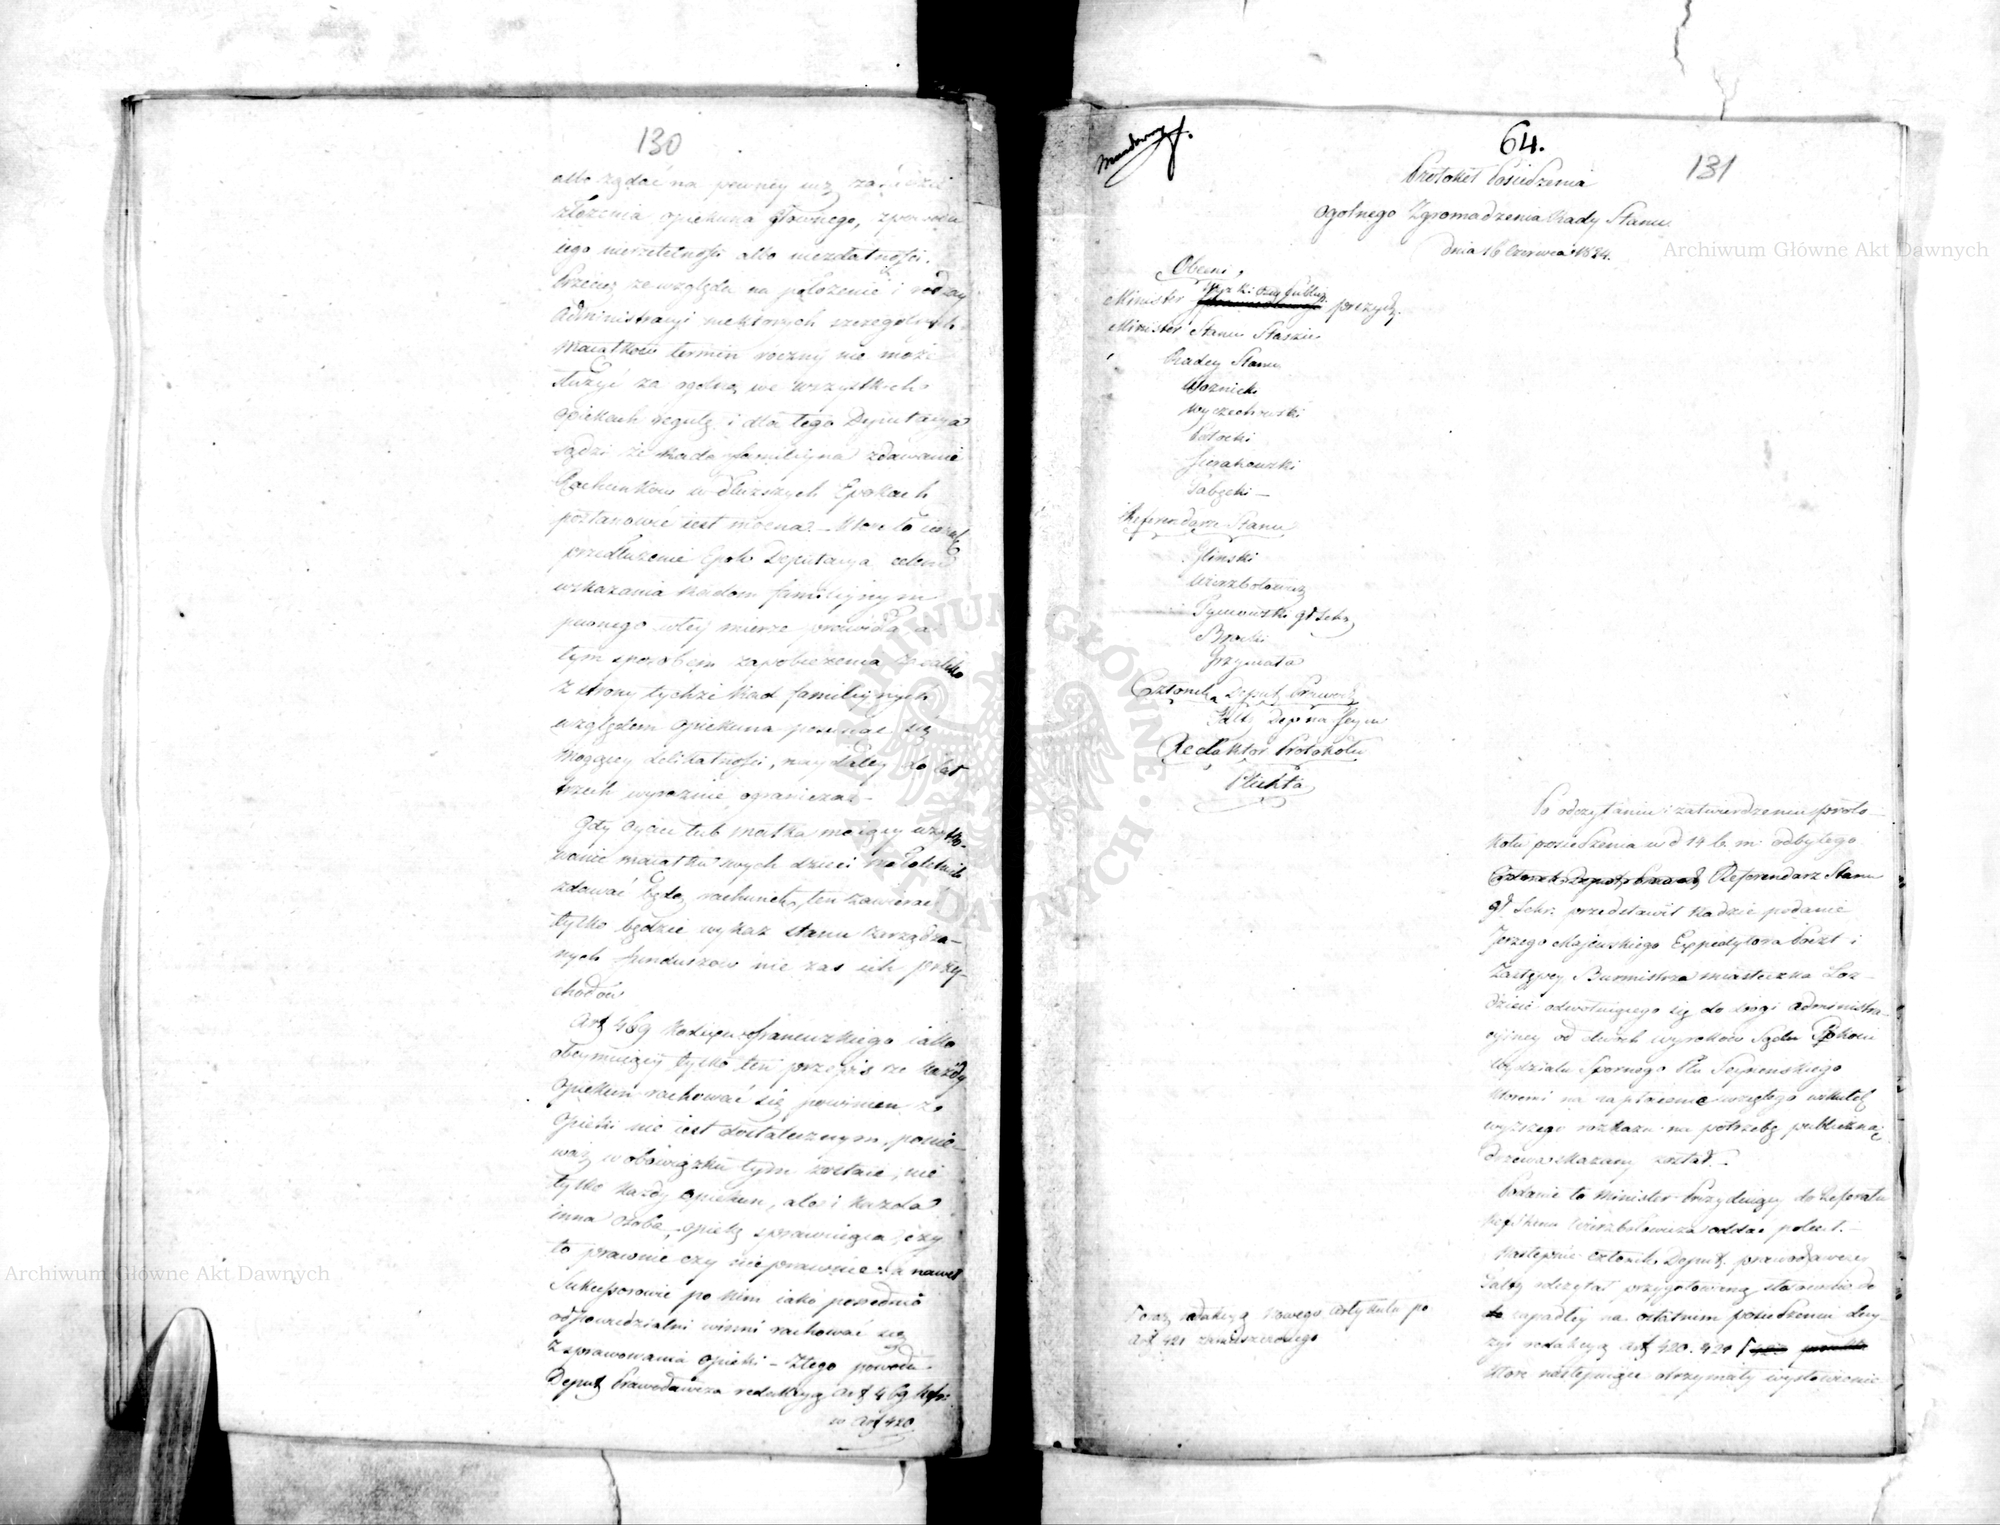 130
albo żądać na pewney
złożenia opiekuna głównego, z powodu
iego nierzetelności albo niezdatności.
Przecież ze względu na położenie i rodzay
administracyi niektórych szczególnych
Maiątków termin roczny nie może
służyć za ogólną we wszystkich
opiekach regułę i dla tego Deputacya
sądzi że Rada familiyna zdawanie
Rachunków w dłuższych Epokach
postanowić iest mocna. – Które to
przedłużenie Epok Deputacya celem
wskazania Radom familiynym
pewnego w tey mierze prawidła a
tym sposobem zapobieżenia
z strony tychże Rad familiynych
względem opiekuna posuwać się
mogącey delikatności, naydaley do lat
trzech wyraźnie ogranicza. –
Gdy oyciec lub matka maiący użytko-
wanie maiątku swych dzieci małoletnich
zdawać będą rachunek, ten zawierać
tylko będzie wykaz stanu zarządza-
nych funduszów nie zaś ich przy-
chodów
Art 469 Kodexu Francuzkiego iako
obeymuiący tylko ten przepis że każdy
opiekun rachować się powinien z
opieki nie iest dostatecznym, ponie-
waż w obowiązku tym zostaie, nie
tylko każdy opiekun, ale i każda
inna osoba, opiekę sprawuiąca, czy
to prawnie czy nieprawnie. a nawet
Sukcessorowie po nim iako pośrednio
odpowiedzialni winni rachować się
z sprawowania opieki – Ztego powodu
Deput Prawodawcza redakcyą art 469
w Art 420
64.
131
Protokół Posiedzenia
Ogólnego Zgromadzenia Rady Stanu
dnia 16 Czerwca 1824.
Obecni,
Minister prezyd.
Minister Stanu Staszic
Radcy Stanu
Woźnicki
Wyczechowski
Potocki
Sierakowski
Łabęcki –
Referendarze Stanu
Gliński
Wierzbołowicz
Tymowski gł Sekr
Brocki
Grzymała
Członek Deput Prawod
Redaktor Protokołu
Plichta
Po odczytaniu i zatwierdzeniu proto-
kołu posiedzenia w d 14 b. m. odbytego
Referendarz Stanu
gł. Sekr. przedstawił Radzie podanie
Jerzego Majewskiego Expedytora Poczt i
Zastępcy Burmistrza miasteczka Łoz-
dzieie odwołuiącego się do drogi administra-
cyiney od dwóch wyroków Sądu Pokoiu
Wydziału Spornego Ptu Seyneńskiego
któremi na zapłacenie wziętego wskutek
wyższego rozkazu na potrzebę publiczną
drzewa skazany został. –
Podanie to Minister Prezyduiący do Referatu
Wierzbołowicza oddać polecił. –
Następnie członek Deput. prawodawczey
odczytał przygotowaną stosownie do
zapadłey na ostatnim posiedzeniu decy-
zyi redakcyą art 420. 421
które następuiące otrzymały wysłowienie
oraz redakcyą nowego artykułu po
Art 421 zamieszczonego
Archiwum Główne Akt Dawnych
Archiwum Główne Akt Dawnych
ARCHIWUM GŁÓWNE AKT DAWNYCH